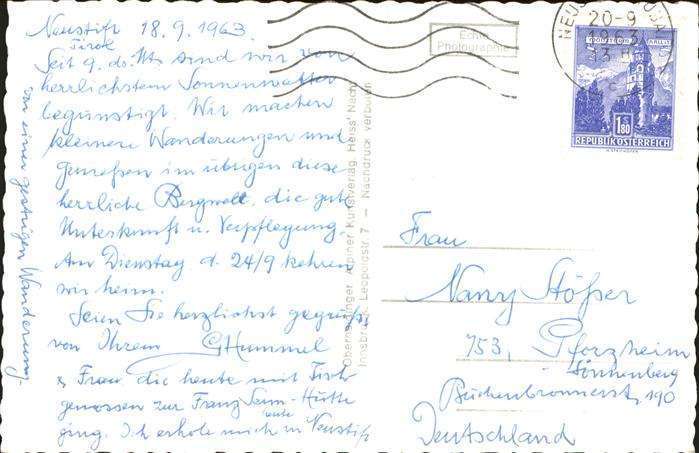 Neustift 18.9.1963.
Tirol
Seit 9. ds. Mts. sind wir von
herrlichstem Sonnenwetter
begünstigt. Wir machen
kleinere Wanderungen und
genießen im übrigen diese
herrliche Bergwelt, die gute
Unterkunft u. Verpflegung.
Am Dienstag d. 24/9 kehren
wir heim.
Seien Sie herzlichst gegrüßt
von Ihrem GHummel
u. Frau die heute mit Tisch-
genossen zur Franz Senn-Hütte
ging. Ich erhole mich heute in Neustift
von einer gestrigen Wanderung.
Echte
Photographie
Alpiner Kunstverlag
Innsbruck, Leopoldstr. 7 – Nachdruck verboten
20-9
1963
1.80
REPUBLIK ÖSTERREICH
Frau
Nany Stößer
753, Pforzheim
Sonnenberg
Büchenbronnerstr. 190
Deutschland